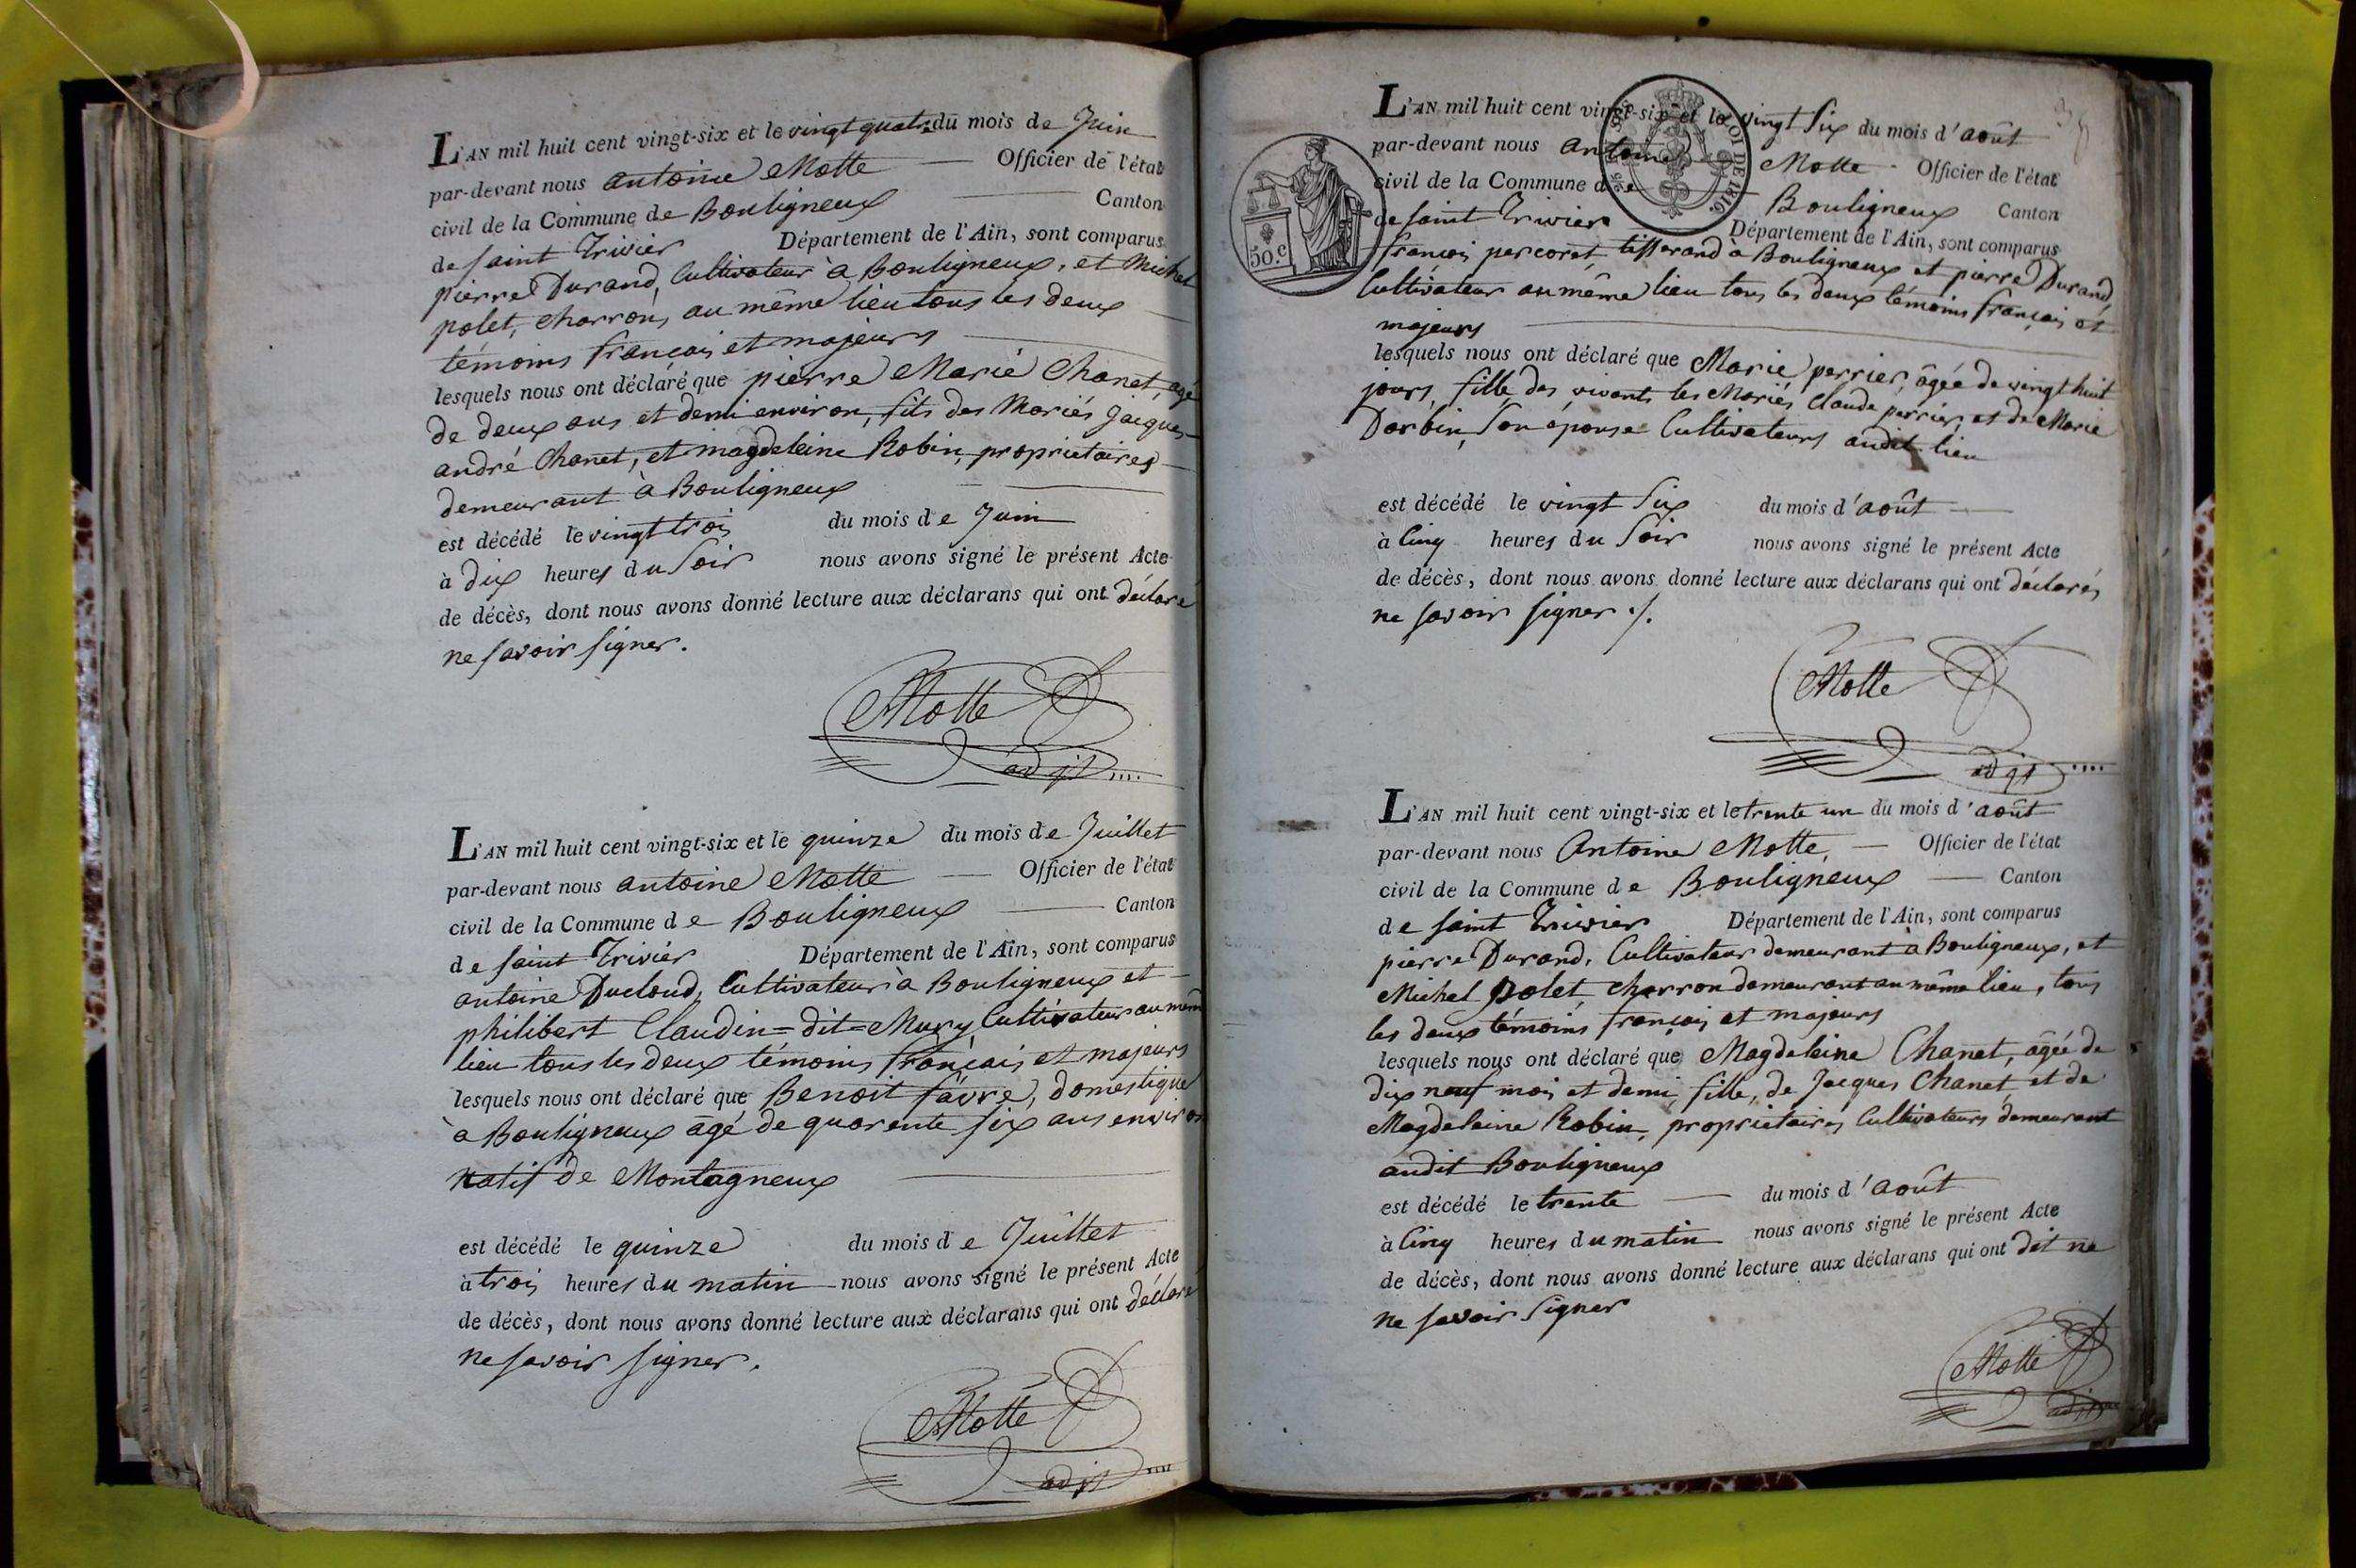 L'AN mil huit cent vingt-six et le vingt quatre du mois de Juin
par-devant nous antoine Motte Officier de l'état
civil de la Commune de Bouligneux Canton
de saint Trivier Département de l'Ain, sont comparus
pierre Durand, Cultivateur à Bouligneux, et Michel
polet, charron, au même lieu tous les deux
témoins français et majeurs
lesquels nous ont déclaré que pierre Marie Chanet, agé
de deux ans et demi environ, fils des Mariés Jacques
andré Chanet, et magdeleine Robin, proprietaires
demeurant à Bouligneux
est décédé le vingt trois du mois de Juin
à dix heures du Soir nous avons signé le présent Acte
de décès, dont nous avons donné lecture aux déclarans qui ont déclaré
ne savoir signer.
Motte
adjt
L'AN mil huit cent vingt-six et le quinze du mois de Juillet
par-devant nous antoine Motte Officier de l'état
civil de la Commune de Bouligneux Canton
de saint Trivier Département de l'Ain, sont comparus
antoine Ducloud, Cultivateur à Bouligneux et
philibert Claudin=dit=Mury Cultivateur au même
lieu tous les deux témoins français et majeurs
lesquels nous ont déclaré que Benoit favre, domestique
à Bouligneux âgé de quarente six ans environ
natif de Montagneux
est décédé le quinze du mois de Juillet
à trois heures du matin nous avons signé le présent Acte
de décès, dont nous avons donné lecture aux déclarans qui ont déclaré
ne savoir signer.
Motte
adjt
L'AN mil huit cent vingt-six et le vingt Six du mois d'août
par-devant nous antoine Motte Officier de l'état
civil de la Commune de Bouligneux Canton
de saint Trivier Département de l'Ain, sont comparus
50.c
LOI DE 1816.
françois percoret, tisserand à Bouligneux et pierre Durand,
Cultivateur au même lieu tous les deux témoins français et
majeurs
lesquels nous ont déclaré que Marie perrier, âgée de vingt huit
jours, fille des vivants les Mariés Claude perrier, et de Marie
Dorbin, Son épouse Cultivateurs audit lieu
est décédé le vingt Six du mois d'août
à Cinq heures du Soir nous avons signé le présent Acte
de décès, dont nous avons donné lecture aux déclarans qui ont déclarés
ne savoir signer ./.
Motte
adjt
L'AN mil huit cent vingt-six et le trente un du mois d'août
par-devant nous Antoine Motte, Officier de l'état
civil de la Commune de Bouligneux Canton
de saint Trivier Département de l'Ain, sont comparus
pierre Durand, Cultivateur demeurant à Bouligneux, et
Michel polet, charron demeurant au même lieu, tous
les deux témoins français et majeurs
lesquels nous ont déclaré que Magdeleine Chanet, âgée de
dix neuf mois et demi, fille, de Jacques Chanet, et de
Magdeleine Robin, proprietaires Cultivateurs demeurant
audit Bouligneux
est décédé le trente du mois d'août
à Cinq heures du matin nous avons signé le présent Acte
de décès, dont nous avons donné lecture aux déclarans qui ont dit ne
ne savoir signer
Motte
adjt